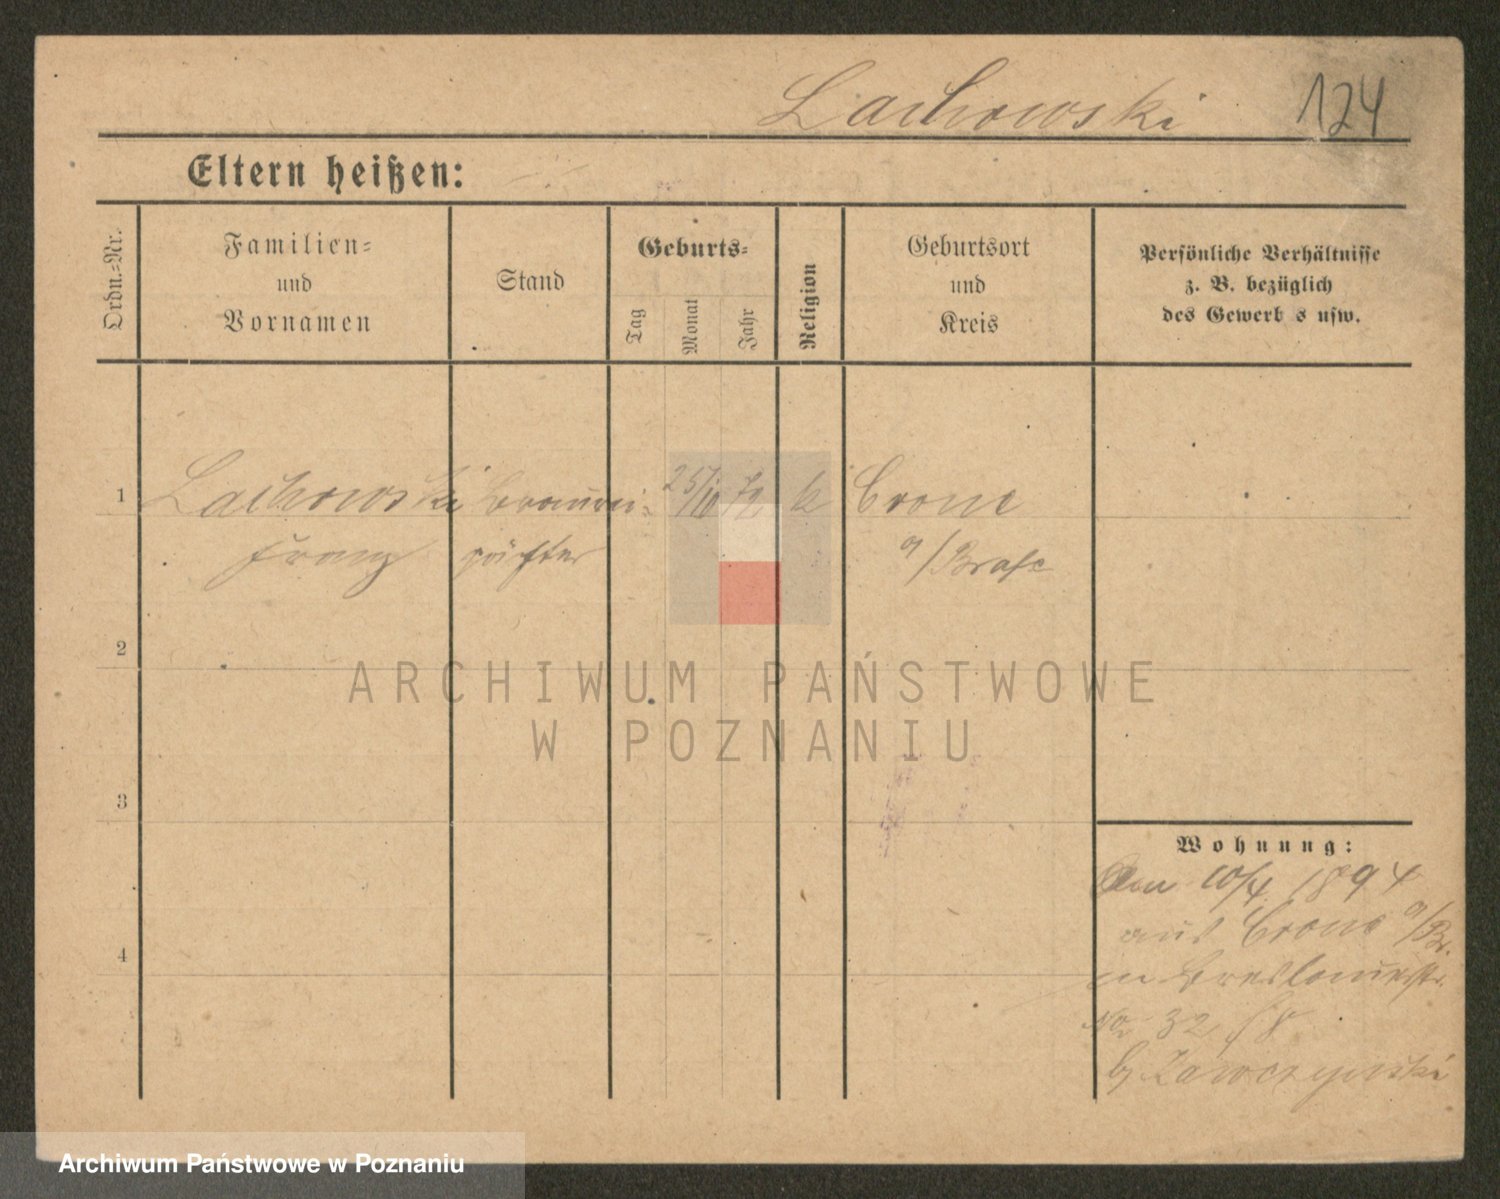 Lachowski 124
Eltern heißen:
Ordn.=Nr.
Familien=
und
Vornamen
Stand
Geburts=
Tag
Monat
Jahr
Religion
Geburtsort
und
Kreis
Persönliche Verhältnisse
z. B. bezüglich
des Gewerb s usw.
1 Lachowski 25/10 72 k Crone
Franz a/Brahe
2
3
4
Wohnung:
10/4 1894
aus Crone a/Br.
in Breslauerstr.
No 32
b/ Zawczynski
ARCHIWUM PAŃSTWOWE
W POZNANIU
Archiwum Państwowe w Poznaniu